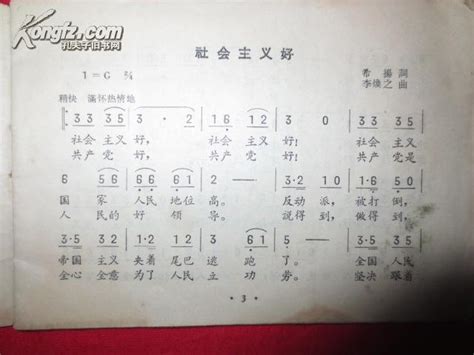 Kongfz.com
孔夫子旧书网
社会主义好
1=G 2/4
希揚 詞
李煥之 曲
稍快 滿怀热情地
3 3 3 5 | 3 · 2 | 1 6 1 2 | 3 0 | 3 3 3 5
社会 主义 好， 社会 主义 好！ 社会 主义
共产 党 好， 共产 党 好！ 共产 党是
6 5 6 | 6 6 6 1 | 5 - | 3·2 1 | 1·6 5 0
国 家 人民 地位 高。 反动 派， 被打 倒，
人 民的 好 領导。 說得 到， 做得 到，
3·5 3 2 | 1·2 1 2 | 3 2 | 3 (6 1) | 3·5 3 5
帝国 主义 夹着 尾巴 逃 跑 了。 全国 人民
全心 全意 为了 人民 立 功 劳。 坚决 跟着
· 3 ·